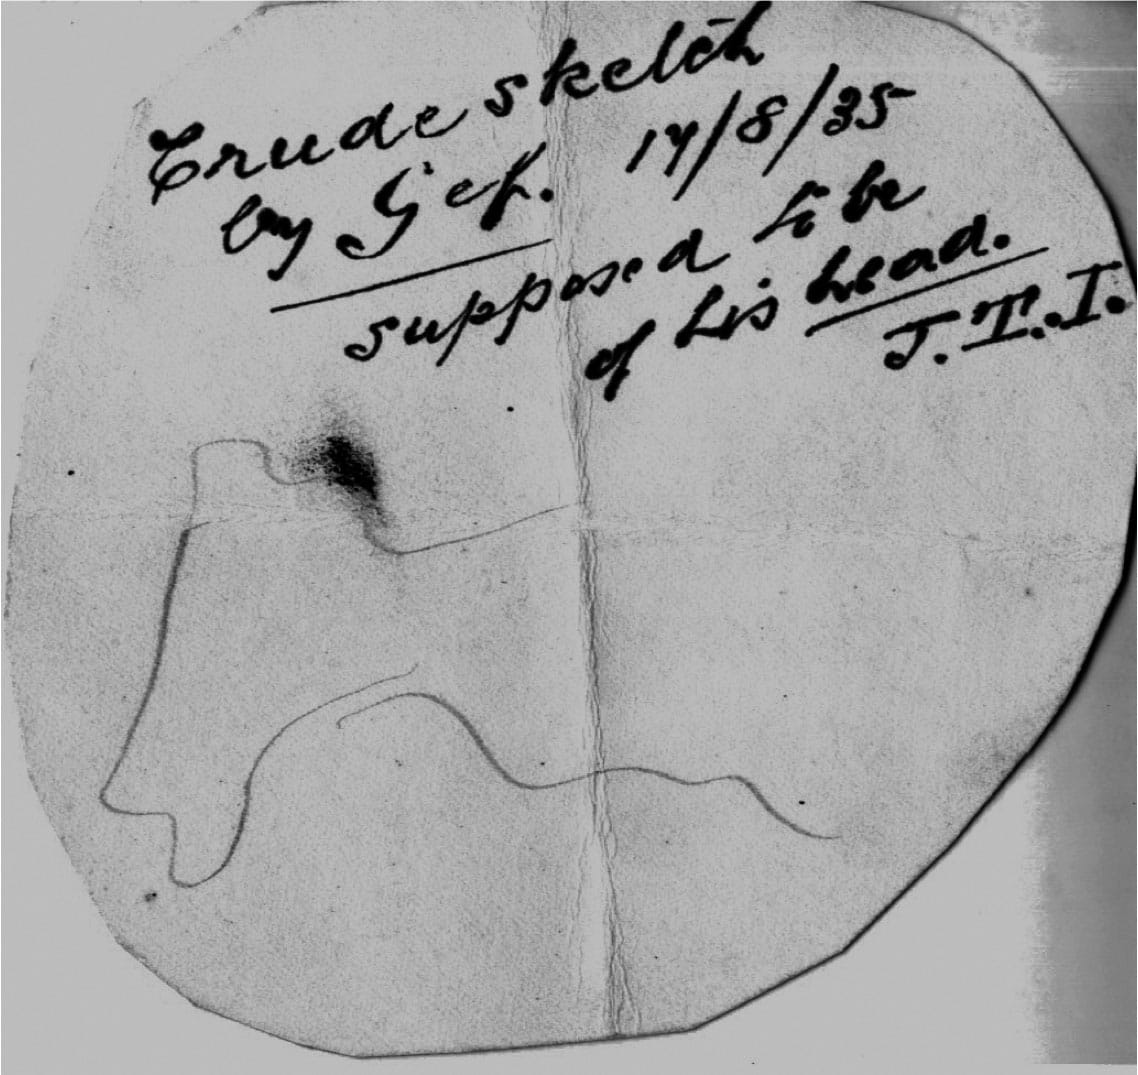 Crude sketch
by Gef. 17/8/35
supposed to be
of his head.
J. T. I.